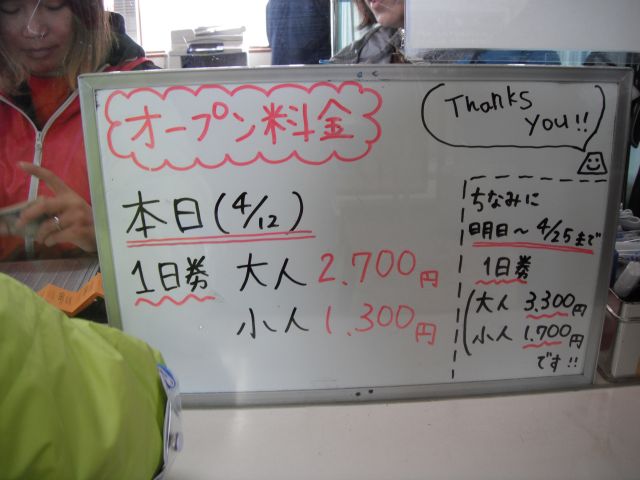 オープン料金
本日(4/12)
1日券 大人 2.700円
小人 1.300円
Thanks
you!!
ちなみに
明日~4/25まで
1日券
大人 3,300円
小人 1.700円
です!!